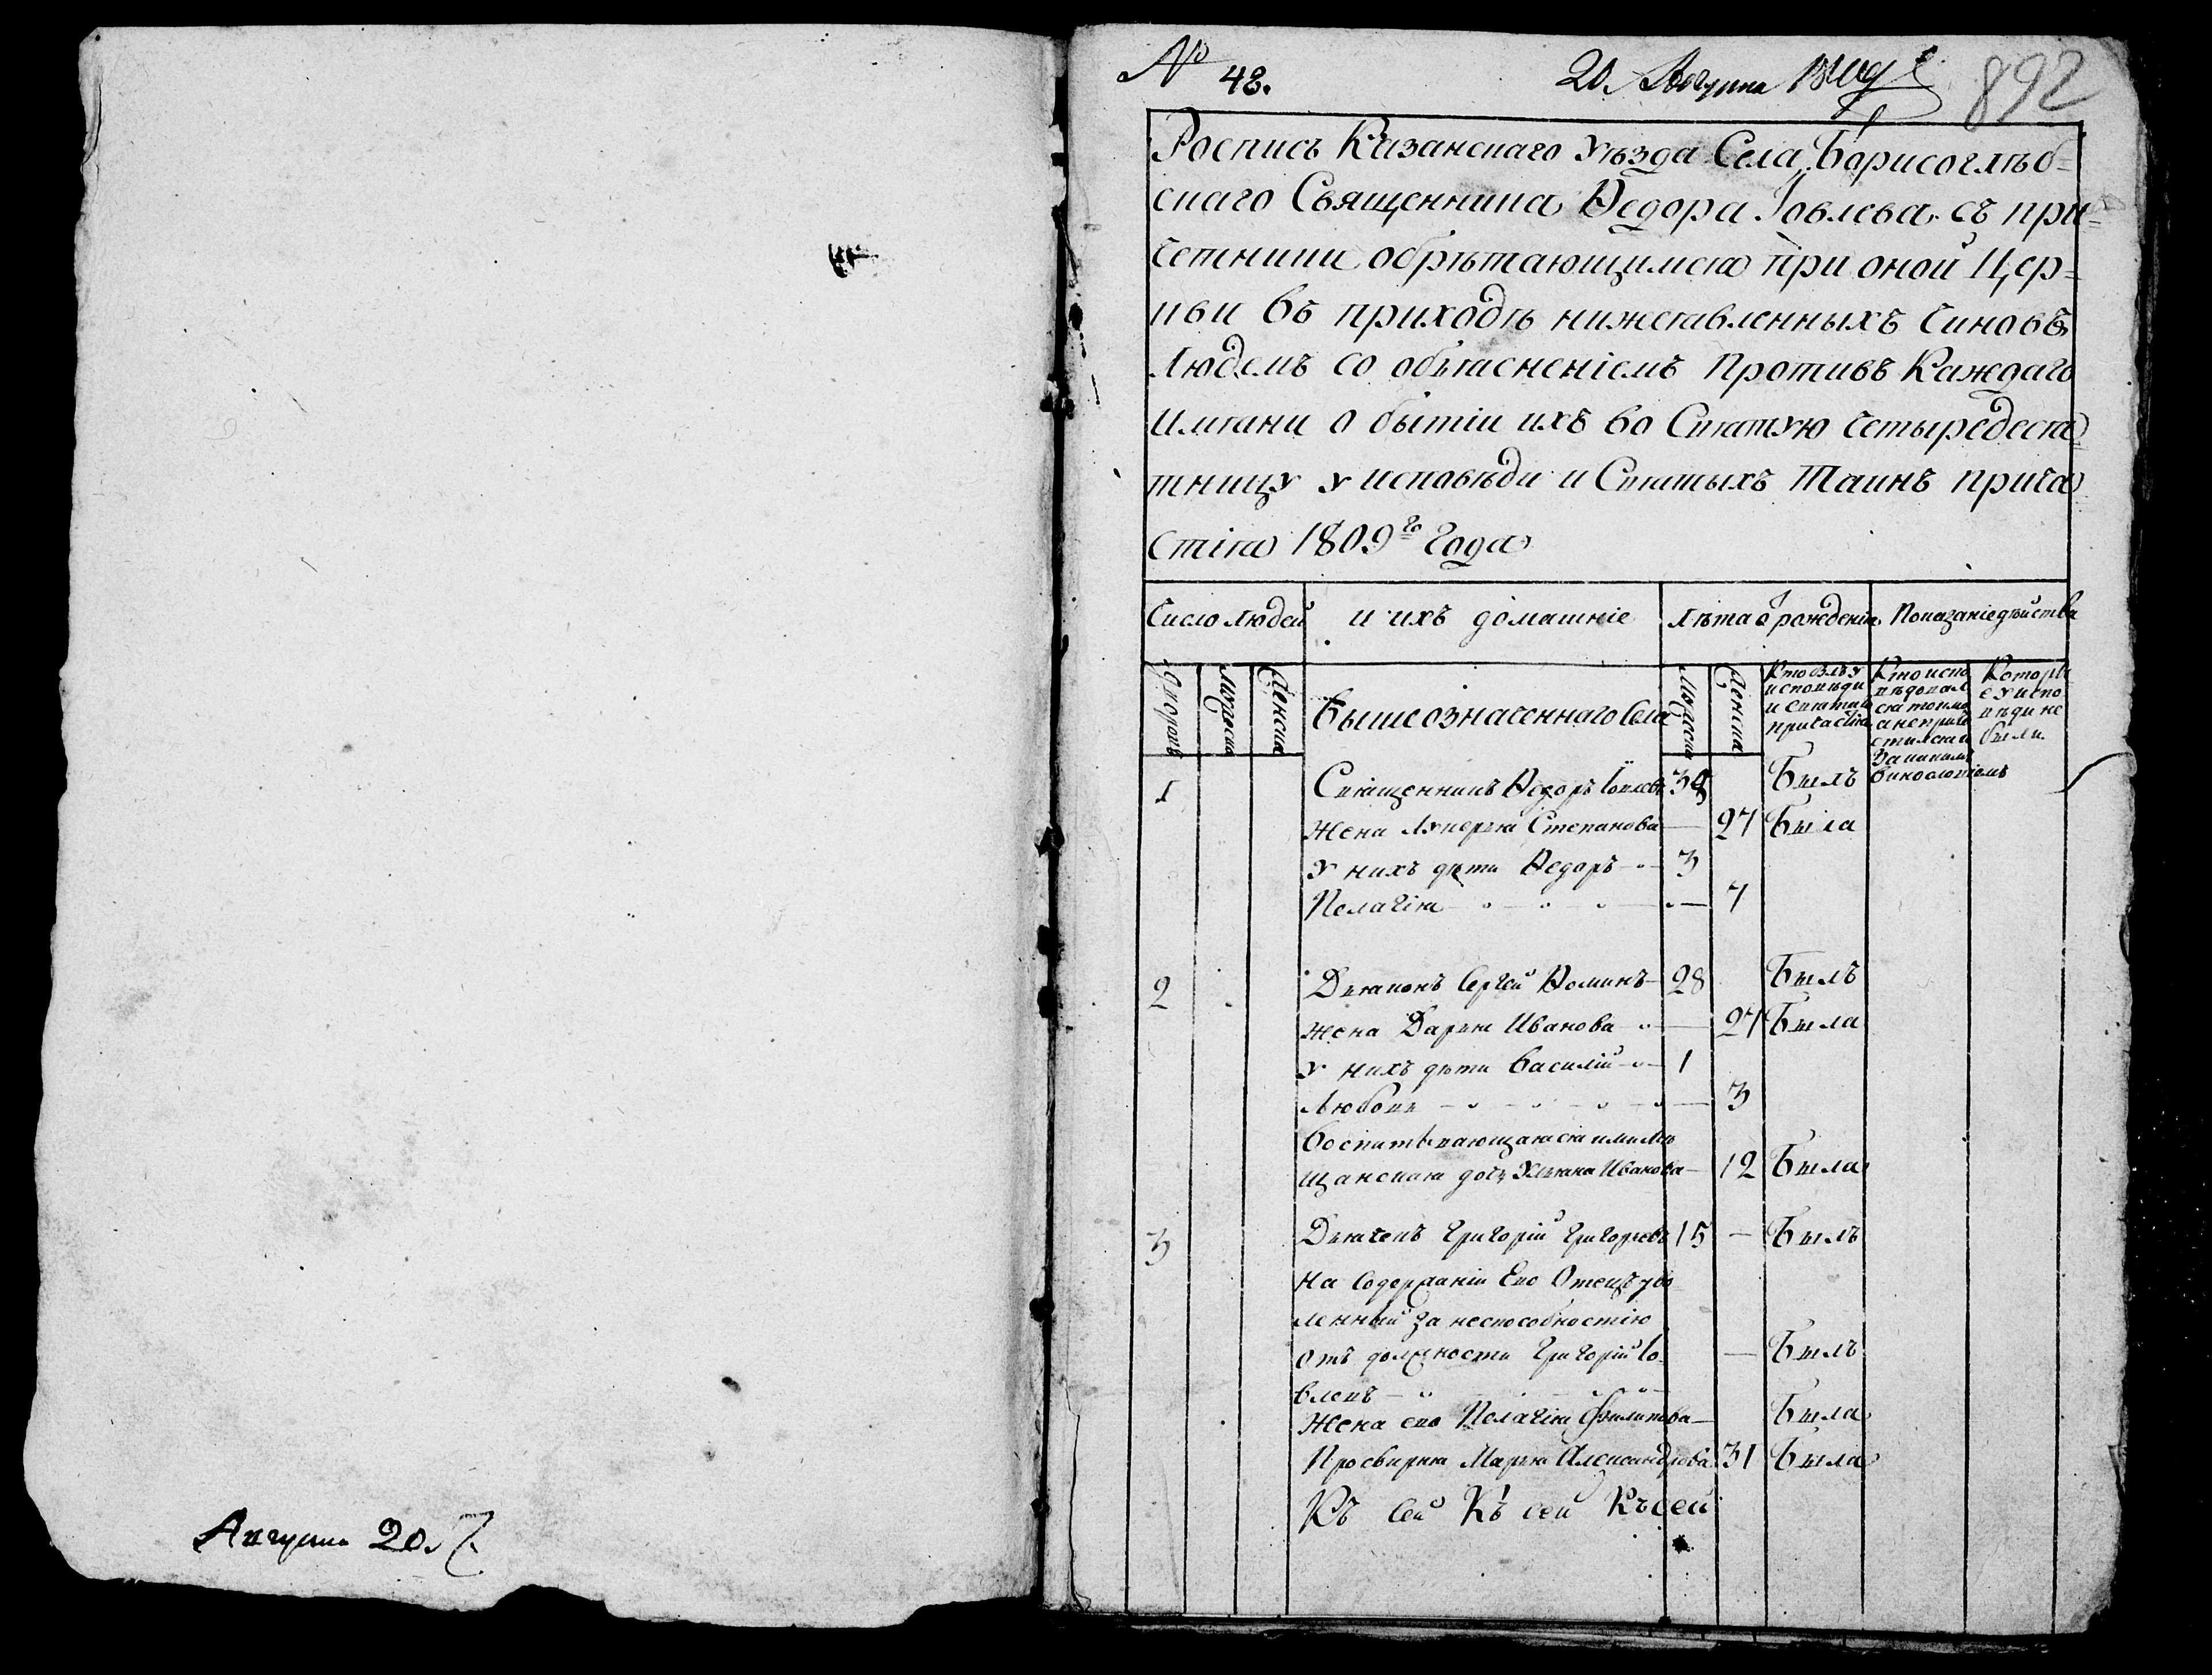 Августа 20.
№ 48.
20. Августа
892
Роспись Казанскаго Уѣзда Села Борисоглѣб=
скаго Священника Ѳедора Іовлева съ при=
четники обрѣтающимся при оной Цер=
кви въ приходѣ нижеявленныхъ чиновъ
Людемъ со объясненіемъ противъ Каждаго
Имяни о бытіи ихъ во Святую четыредеся
тницу у исповѣди и Святыхъ Таинъ прича
стія 1809го Года
Число людей
и ихъ домашніе
лѣта ѿ рожденія
Показаніе дѣйства
Дворовъ
Мужеска
Женска
вышеозначеннаго Села
Мужеска
Женска
Кто былъ у
исповѣди
и святыхъ
причастія
Кто испо
вѣдовал
ся токмо
а не прича
стился и
За какимъ
винословіемъ
Которы
е у испо
вѣди не
были
1 Священникъ Ѳедоръ Іовлевъ 34 Былъ
Жена Лукерья Степанова — 27 Была
У нихъ дѣти Ѳедоръ 3
Пелагія — 7
2 Дьяконъ Сергей Ѳоминъ 28 Былъ
жена Дарья Иванова — 27 Была
у нихъ дѣти Василій 1
Любовь — 3
воспитывающаяся ими мѣ
щанская дочь Ульяна Иванова — 12 Была
3 Дьячекъ Григорій Григорьевъ 15 — Былъ
На Содержаніи Его Отецъ уво
ленный за неспособностію
отъ должности Григорій Іо
влевъ — Былъ
Жена его Пелагія Филипова — Была
Просвирня Марья Александрова 31 Была
Къ сей Къ сей Къ сей